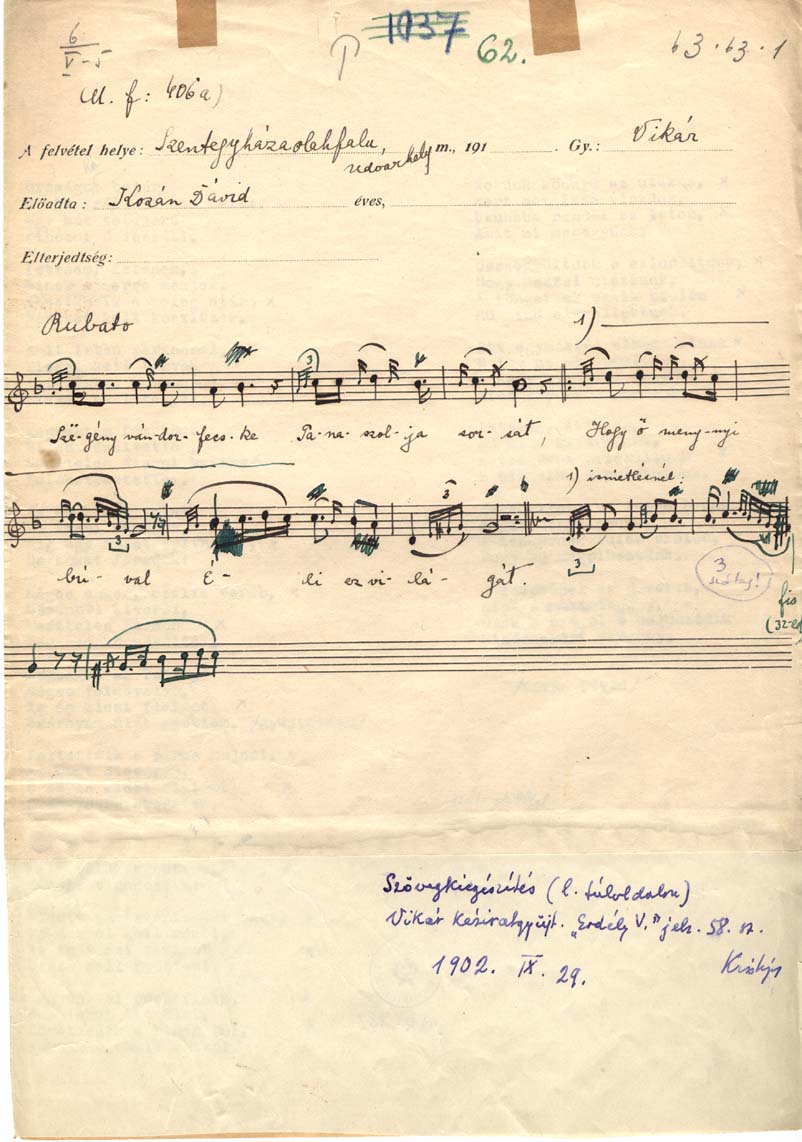 6
V-5
1037
62.
63.63.1
(M. f: 406a)
A felvétel helye: Szentegyházaoláhfalu, Udvarhely m., 191 . Gy.: Vikár
Előadta: Kozán Dávid éves,
Elterjedtség:
Rubato
1)
3
Sze-gény ván-dor-fecs-ke Pa-na-szol-ja sor-sát, Hogy ő meny-nyi
3
1) ismétlésnél:
3
3
bú-val É-li ez vi-lá-gát.
3
fis
(32-ed)
Szövegkiegészítés (l. túloldalon)
Vikár kéziratgyűjt. "Erdély V." jelz. 58. sz.
1902. IX. 29.